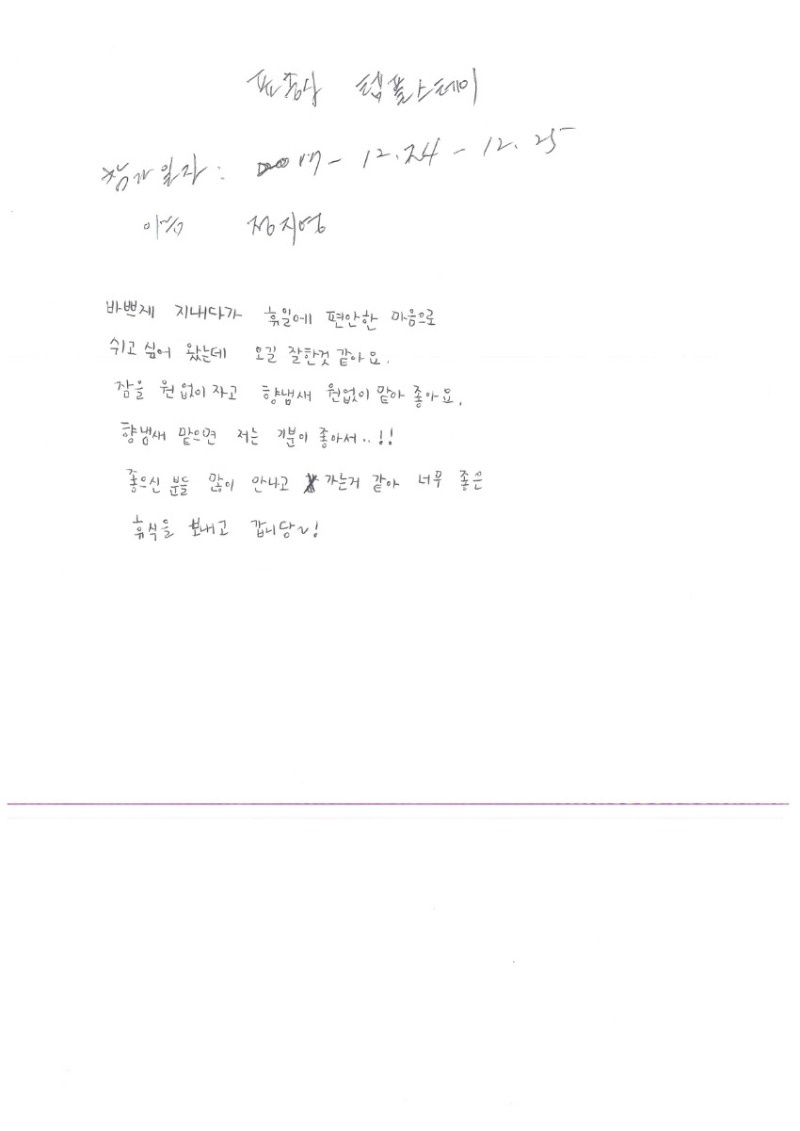 표충사 템플스테이
참가일자 : 2017 - 12.24 - 12.25
이름 정지영
바쁘게 지내다가 휴일에 편안한 마음으로
쉬고 싶어 왔는데 오길 잘한것 같아요.
잠을 원없이 자고 향냄새 원없이 맡아 좋아요.
향냄새 맡으면 저는 기분이 좋아서..!!
좋으신 분들 많이 만나고 가는거 같아 너무 좋은
휴식을 보내고 갑니당~!